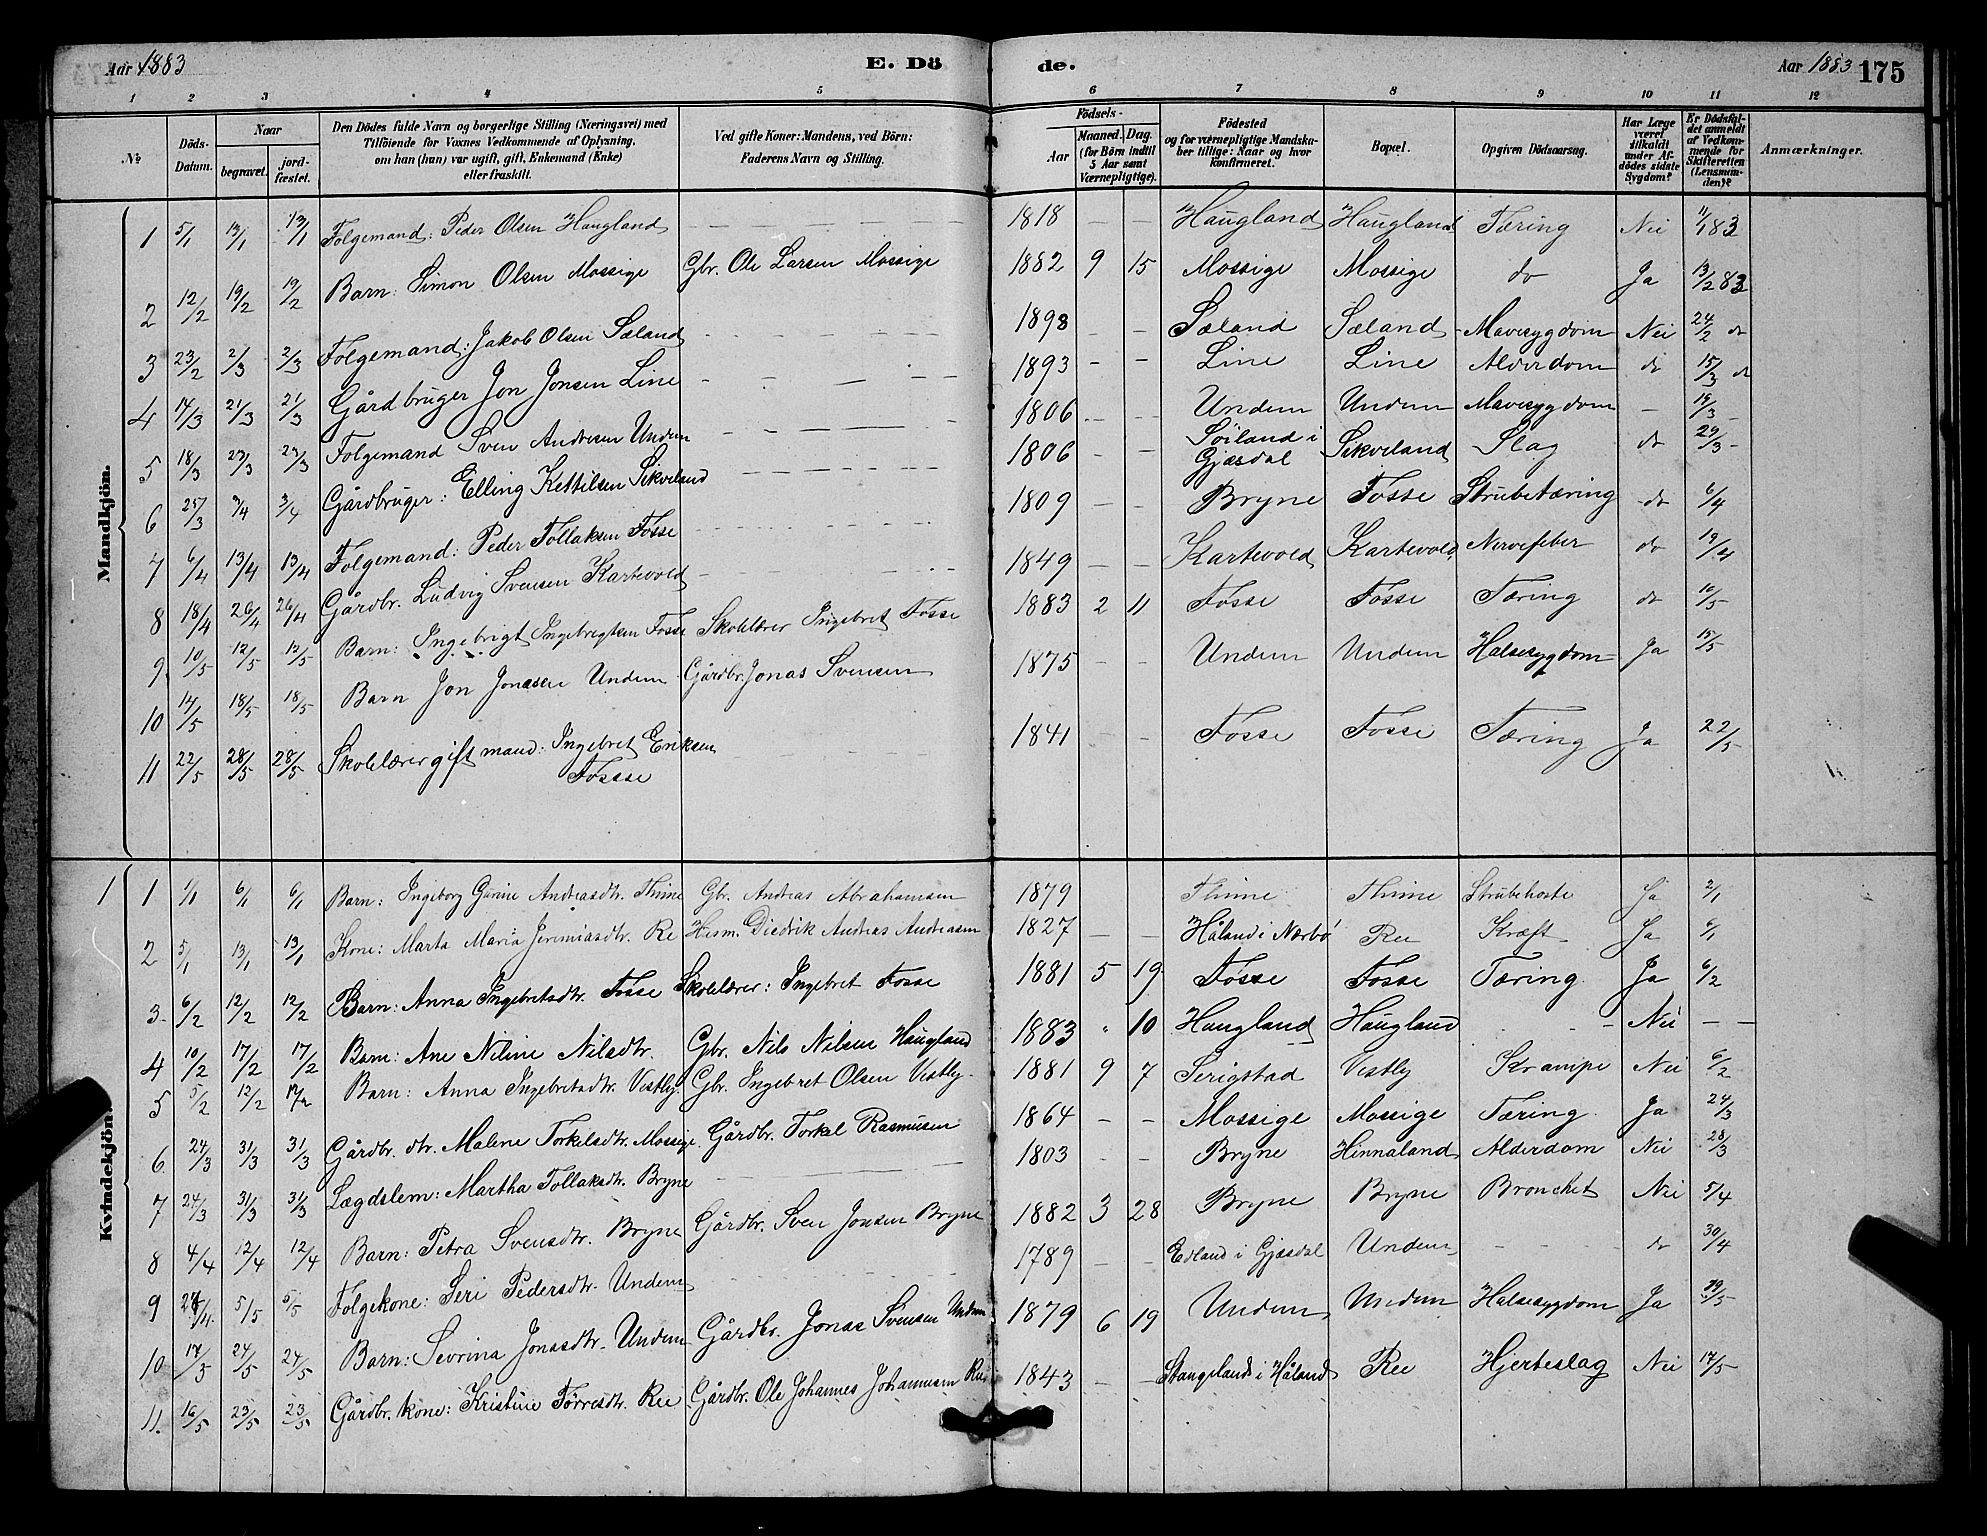 Aar 1883 E. Dö de. Aar 1883 175
1 2 3 4 5 6 7 8 9 10 11 12
№ Döds-Datum. Naar begravet. jord-fæstet. Den Dödes fulde Navn og borgerlige Stilling (Næringsvei) med Tilföiende for Voxnes Vedkommende af Oplysning, om han (hun) var ugift, gift, Enkemand (Enke) eller fraskilt. Ved gifte Koner: Mandens, ved Börn: Faderens Navn og Stilling. Födsels- Aar Maaned. Dag. (for Börn indtil 5 Aar samt Værnepligtige). Födested og for værnepligtige Mandska-ber tillige: Naar og hvor konfirmeret. Bopæl. Opgiven Dödsaarsag. Har Læge været tilkaldt under Af-dödes sidste Sygdom? Er Dödsfal-det anmeldt af Vedkom-mende for Skifteretten (Lensman-den)? Anmærkninger.
Mandkjön.
1 5/1 13/1 13/1 Folgemand: Peder Olsen Haugland — — — 1818 — — Haugland Haugland Tæring Nei 11/1 83
2 12/2 19/2 19/2 Barn: Simon Olsen Mossige Gbr. Ole Larsen Mossige 1882 9 15 Mossige Mossige do Ja 13/2 83
3 23/2 2/3 2/3 Folgemand: Jakob Olsen Sæland — — — 1898 — — Sæland Sæland Mavesygdom Nei 24/2 do
4 14/3 21/3 21/3 Gårdbruger Jon Jonsen Line — — — 1893 — — Line Line Alderdom do 15/3 do
5 18/3 23/3 23/3 Folgemand Sven Andresen Undem — — — 1806 — — Undem Undem Mavesygdom — 19/3 —
6 25/3 3/4 3/4 Gårdbruger: Elling Kettilsen Sikveland — — — 1806 — — Söiland i Gjæsdal Sikveland Slag do 29/3 —
7 6/4 13/4 13/4 Folgemand: Peder Tollaksen Fosse — — — 1809 — — Bryne Fosse Strubetæring do 6/4
8 18/4 26/4 26/4 Gårdbr. Ludvig Svensen Kartevold — — — 1849 — — Kartevold Kartevold Nervefeber do 19/4
9 10/5 12/5 12/5 Barn: Ingebrigt Ingebrigtsen Fosse Skolelærer Ingebret Fosse 1883 2 11 Fosse Fosse Tæring do 10/5
10 14/5 18/5 18/5 Barn Jon Jonasen Undem Gårdbr. Jonas Svensen 1875 — — Undem Undem Halssygdom Ja 15/5
11 22/5 28/5 28/5 Skolelærer gift mand: Ingebret Eriksen Fossse 1841 Fosse Fosse Tæring Ja 22/5
Kvindekjön.
1 1 1/1 6/1 6/1 Barn: Ingeborg Gurine Andreasdtr. Thime Gbr. Andreas Abrahamsen 1879 Thime Thime Strubehoste Ja 2/1
2 5/1 13/1 13/1 Kone: Marta Maria Jeremiasdtr. Re Husm. Diedrik Andreas Andreasen 1827 — — Håland i Nærbö Ree Kræft Ja 6/1
3 6/2 12/2 12/2 Barn: Anna Ingebretsdtr. Fosse Skolelærer: Ingebret Fosse 1881 5 19 Fosse Fosse Tæring Ja 6/2
4 10/2 17/2 17/2 Barn: Ane Niline Nilsdtr. Gbr. Nils Nilsen Haugland 1883 " 10 Haugland Haugland — — Nei — —
5 5/2 12/2 12/2 Barn: Anna Ingebretsdtr. Vestly Gbr. Ingebret Olsen Vestly 1881 9 7 Serigstad Vestly Krampe Nei 6/2
6 24/3 31/3 31/3 Gårdbr. dtr. Malene Torkelsdtr. Mossige Gårdbr. Torkel Rasmusen 1864 — — Mossige Mossige Tæring Ja 24/3
7 24/3 31/3 31/3 Lægdslem: Martha Tollaksdtr. Bryne — — — 1803 — — Bryne Hinnaland Alderdom Nei 28/3
8 4/4 12/4 12/4 Barn: Petra Svensdtr. Bryne Gårdbr. Sven Jonsen Bryne 1882 3 28 Bryne Bryne Bronchet Nei 5/4
9 5/5 5/5 Folgekone: Seri Pedersdtr. Undem — — — 1789 — — Edland i Gjæsdal Undem — — do 30/4
10 17/5 24/5 24/5 Barn: Sevrina Jonasdtr. Undem Gårdbr. Jonas Svensen Undem 1879 6 19 Undem Undem Halssygdom Ja 19/5
11 16/5 23/5 23/5 Gårdbr. kone: Kristine Torresdtr. Ree Gårdbr. Ole Johannes Johannesen Ree 1843 — — Stangeland i Håland Ree Hjerteslag Nei 17/5